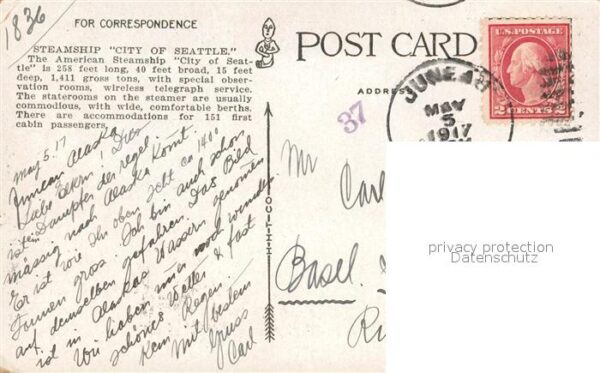 1836
FOR CORRESPONDENCE
POST CARD
STEAMSHIP "CITY OF SEATTLE."
The American Steamship "City of Seat-
tle" is 258 feet long, 40 feet broad, 15 feet
deep, 1,411 gross tons, with special obser-
vation rooms, wireless telegraph service.
The staterooms on the steamer are usually
commodious, with wide, comfortable berths.
There are accommodations for 151 first
cabin passengers.
May 5. 17
Juneau Alaska
Liebe Eltern! Dies
ist ein Dampfer der regel-
mässig nach Alaska komt.
Er ist wie Ihr oben seht ca 1400
Tonnen gros. Ich bin auch schon
auf demselben gefahren. Das Bild
ist in Alaskas Wassern genommen
Wir haben nun
schönes Wetter & fast
kein Regen.
Mit bestem
Gruss
Carl
ADDRESS
37
U.S. POSTAGE
2 CENTS 2
JUNEAU
MAY
5
1917
Mr
Carl
Basel.
privacy protection
Datenschutz